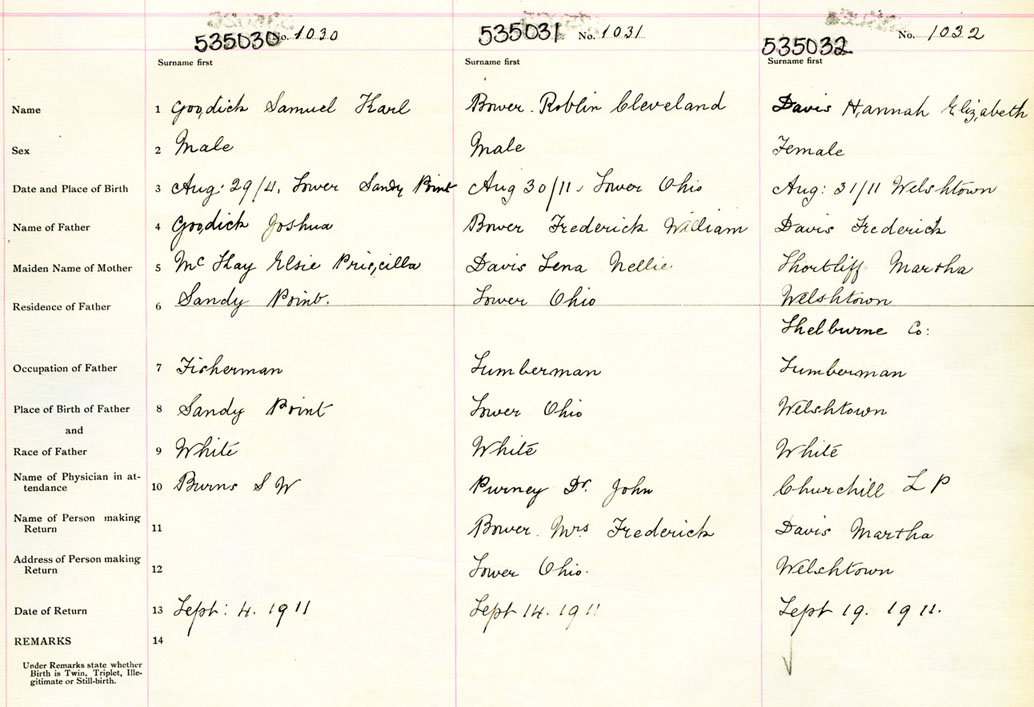 535030 No. 1030 535031 No. 1031 535032 No. 1032
Surname first Surname first Surname first
Name 1 Goodick Samuel Karl Bower Roblin Cleveland Davis Hannah Elizabeth
Sex 2 Male Male Female
Date and Place of Birth 3 Aug: 29/11, Lower Sandy Point Aug 30/11, Lower Ohio Aug: 31/11 Welshtown
Name of Father 4 Goodick Joshua Bower Frederick William Davis Frederick
Maiden Name of Mother 5 Mc Kay Elsie Priscilla Davis Lena Nellie Shortliff Martha
Residence of Father 6 Sandy Point. Lower Ohio Welshtown
Shelburne Co:
Occupation of Father 7 Fisherman Lumberman Lumberman
Place of Birth of Father 8 Sandy Point Lower Ohio Welshtown
and
Race of Father 9 White White White
Name of Physician in at-
tendance 10 Burns S W Purney Dr. John Churchill L P
Name of Person making
Return 11 Bower Mrs Frederick Davis Martha
Address of Person making
Return 12 Lower Ohio. Welshtown
Date of Return 13 Sept: 4. 1911 Sept 14. 1911 Sept 19. 1911.
REMARKS 14
Under Remarks state whether
Birth is Twin, Triplet, Ille-
gitimate or Still-birth.